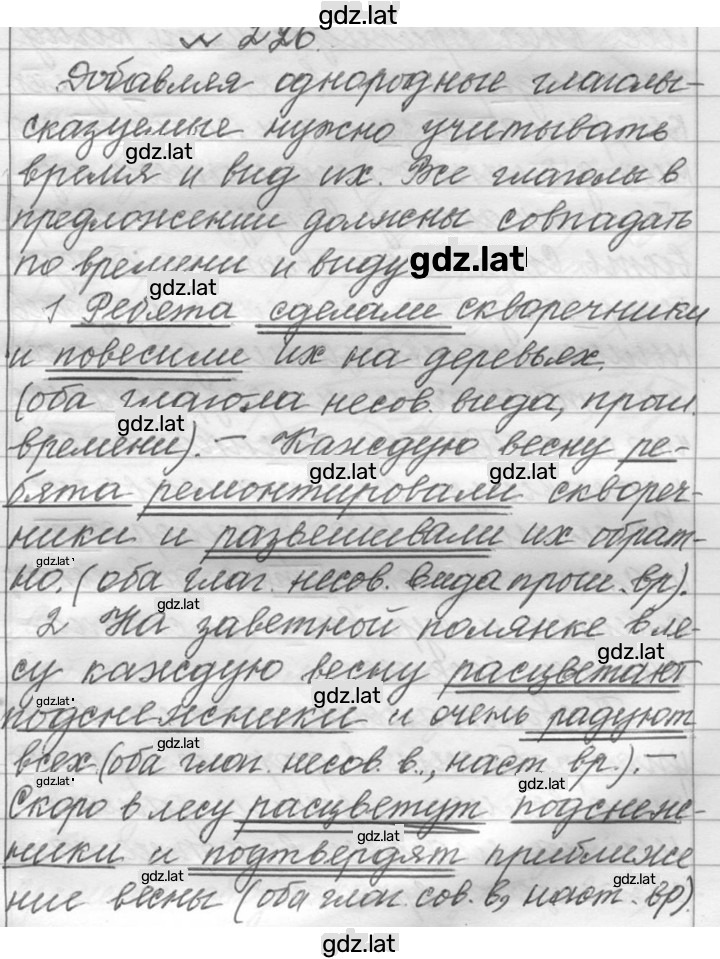 gdz.lat
№ 226.
Добавляя однородные глаголы-
сказуемые нужно учитывать
gdz.lat
время и вид их. Все глаголы в
предложении должны совпадать
по времени и виду gdz.lat
gdz.lat
1 Ребята сделали скворечники
и повесили их на деревьях.
(оба глагола несов. вида, прош.
gdz.lat
времени). – Каждую весну ре-
gdz.lat gdz.lat
бята ремонтировали сквореч-
ники и развешивали их обрат-
gdz.lat
но. (оба глаг. несов. вида прош. вр).
gdz.lat
2 На заветной полянке в ле-
gdz.lat
су каждую весну расцветают
gdz.lat gdz.lat
подснежники и очень радуют
gdz.lat
всех (оба глаг. несов. в., наст. вр.). –
gdz.lat gdz.lat
Скоро в лесу расцветут подснеж-
gdz.lat
ники и подтвердят приближе
gdz.lat gdz.lat
ние весны (оба глаг. сов. в, наст. вр).
gdz.lat